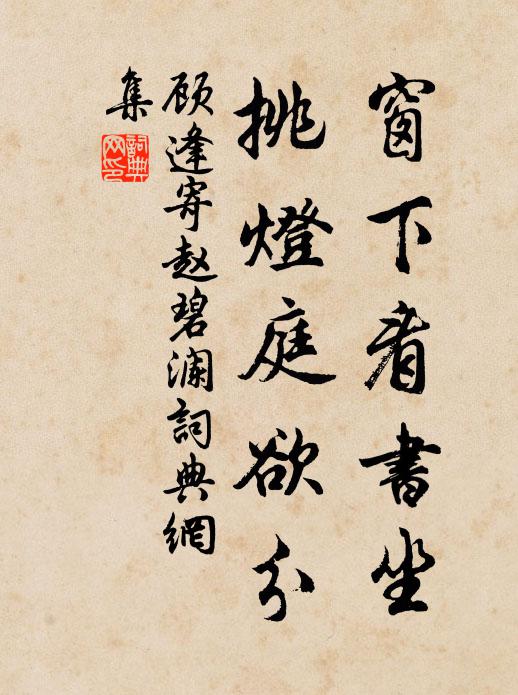 窗下看書坐
挑燈庭欲分
顾逢寄赵碧澜詞典網
集
詞典網印